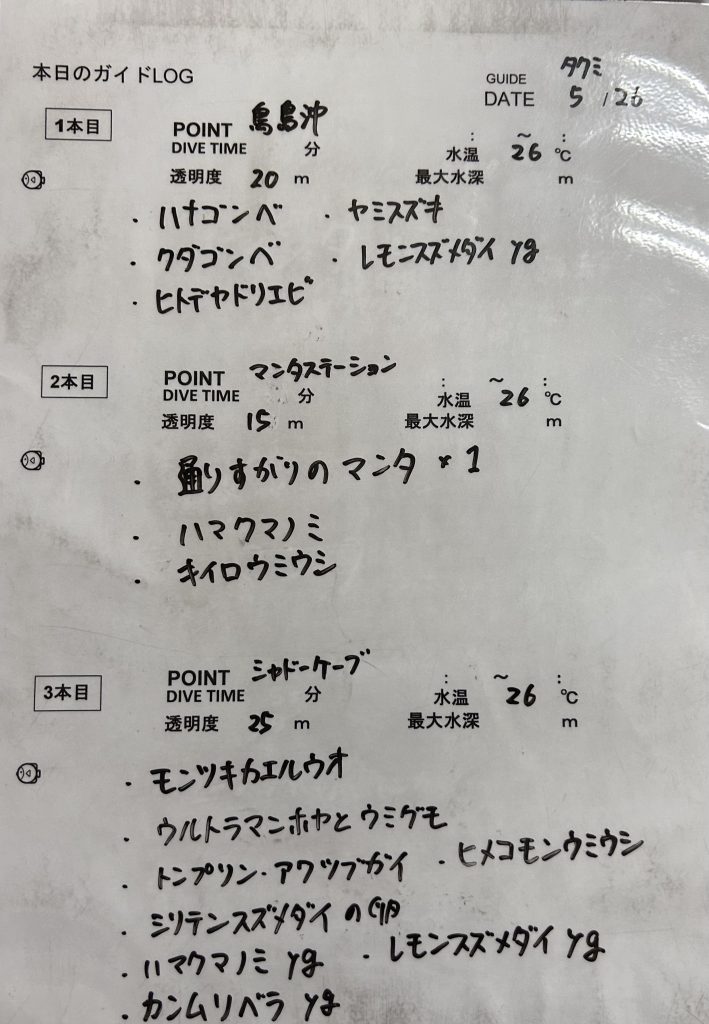 本日のガイドLOG
GUIDE タクミ
DATE 5 / 26
1本目
POINT 鳥島沖
DIVE TIME 分 : ～ :
水温 26 ℃
透明度 20 m 最大水深 m
・ハナゴンベ ・ヤミスズキ
・クダゴンベ ・レモンスズメダイ yg
・ヒトデヤドリエビ
2本目
POINT マンタステーション
DIVE TIME 分 : ～ :
水温 26 ℃
透明度 15 m 最大水深 m
・通りすがりのマンタ × 1
・ハマクマノミ
・キイロウミウシ
3本目
POINT シャドーケーブ
DIVE TIME 分 : ～ :
水温 26 ℃
透明度 25 m 最大水深 m
・モンツキカエルウオ
・ウルトラマンホヤとウミグモ
・トンプリン・アワツブガイ ・ヒメコモンウミウシ
・ミリテンスズメダイの卵
・ハマクマノミ yg ・レモンスズメダイ yg
・カンムリベラ yg